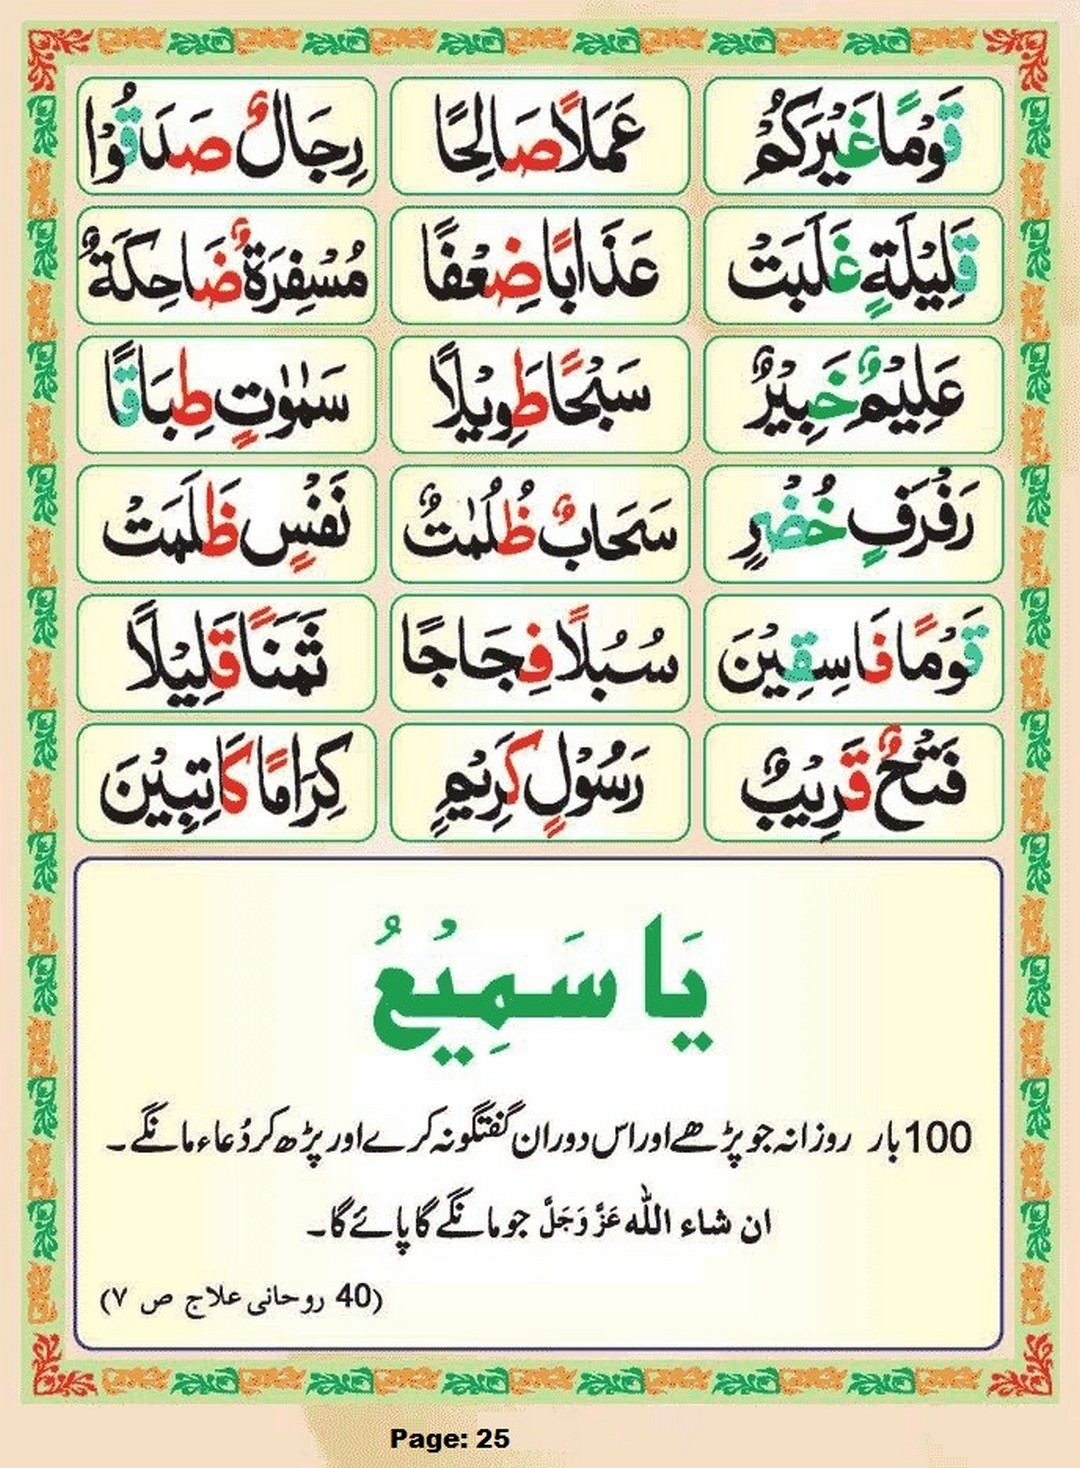 قَوْمًا غَيْرَكُمْ عَمَلًا صَالِحًا رِجَالٌ صَدَقُوْا
قَلِيْلَةٍ غَلَبَتْ عَذَابًا ضِعْفًا مُسْفِرَةٌ ضَاحِكَةٌ
عَلِيْمٌ خَبِيْرٌ سَبْحًا طَوِيْلًا سَمٰوٰتٍ طِبَاقًا
رَفْرَفٍ خُضْرٍ سَحَابٌ ظُلُمٰتٌ نَفْسٍ ظَلَمَتْ
قَوْمًا فَاسِقِيْنَ سُبُلًا فِجَاجًا ثَمَنًا قَلِيْلًا
فَتْحٌ قَرِيْبٌ رَسُوْلٍ كَرِيْمٍ كِرَامًا كَاتِبِيْنَ
يَا سَمِيْعُ
100 بار روزانہ جو پڑھے اور اس دوران گفتگو نہ کرے اور پڑھ کر دُعاء مانگے۔
ان شاء اللّٰہ عَزَّوَجَلَّ جو مانگے گا پائے گا۔
(40 روحانی علاج ص ۷)
Page: 25